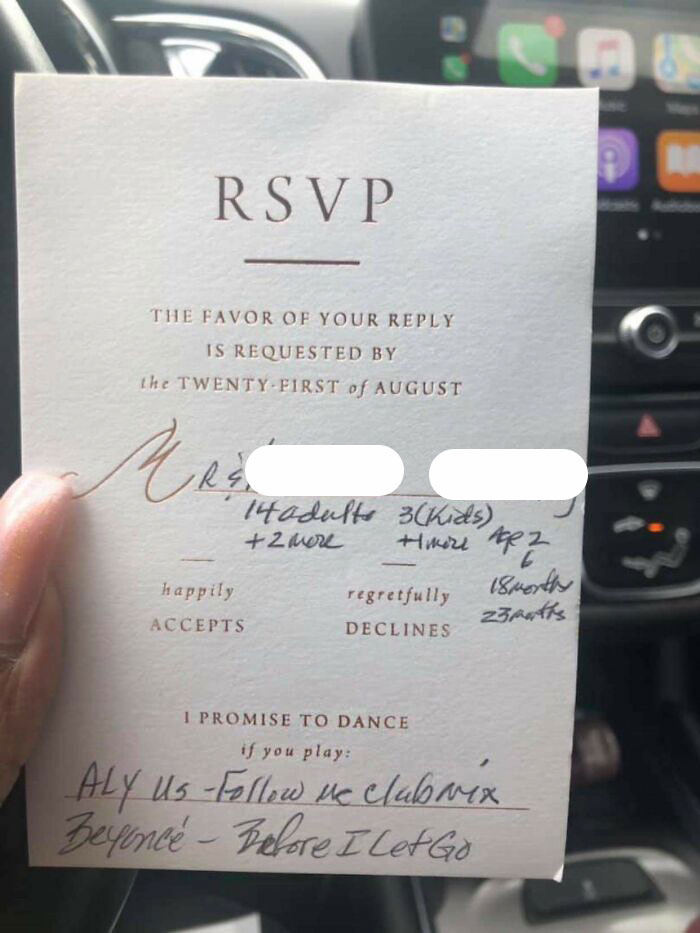 RSVP
THE FAVOR OF YOUR REPLY
IS REQUESTED BY
the TWENTY-FIRST of AUGUST
MR &
14 adults 3(Kids)
+2 more +1 more Age 2
6
18 months
23 months
happily regretfully
ACCEPTS DECLINES
I PROMISE TO DANCE
if you play:
ALY Us - Follow me club mix
Beyoncé - Before I Let Go